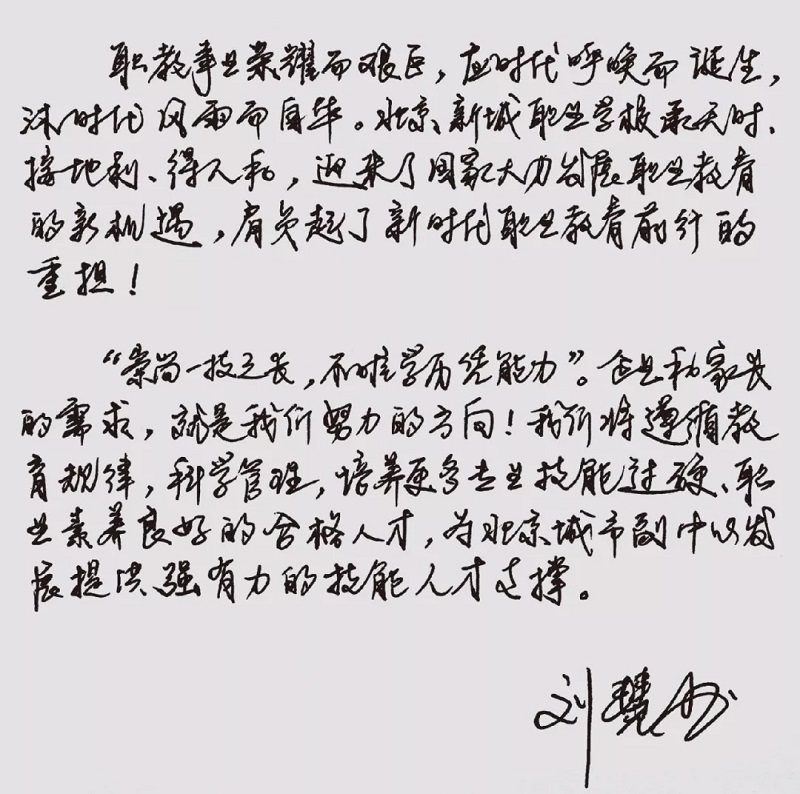 职教事业荣耀而艰巨，应时代呼唤而诞生，
沐时代风雨而自华。北京新城职业学校承天时、
接地利、得人和，迎来了国家大力发展职业教育
的新机遇，肩负起了新时代职业教育前行的
重担！
“崇尚一技之长，不唯学历凭能力”。企业和家长
的需求，就是我们努力的方向！我们将遵循教
育规律，科学管理，培养更多专业技能过硬、职
业素养良好的合格人才，为北京城市副中心发
展提供强有力的技能人才支撑。
刘